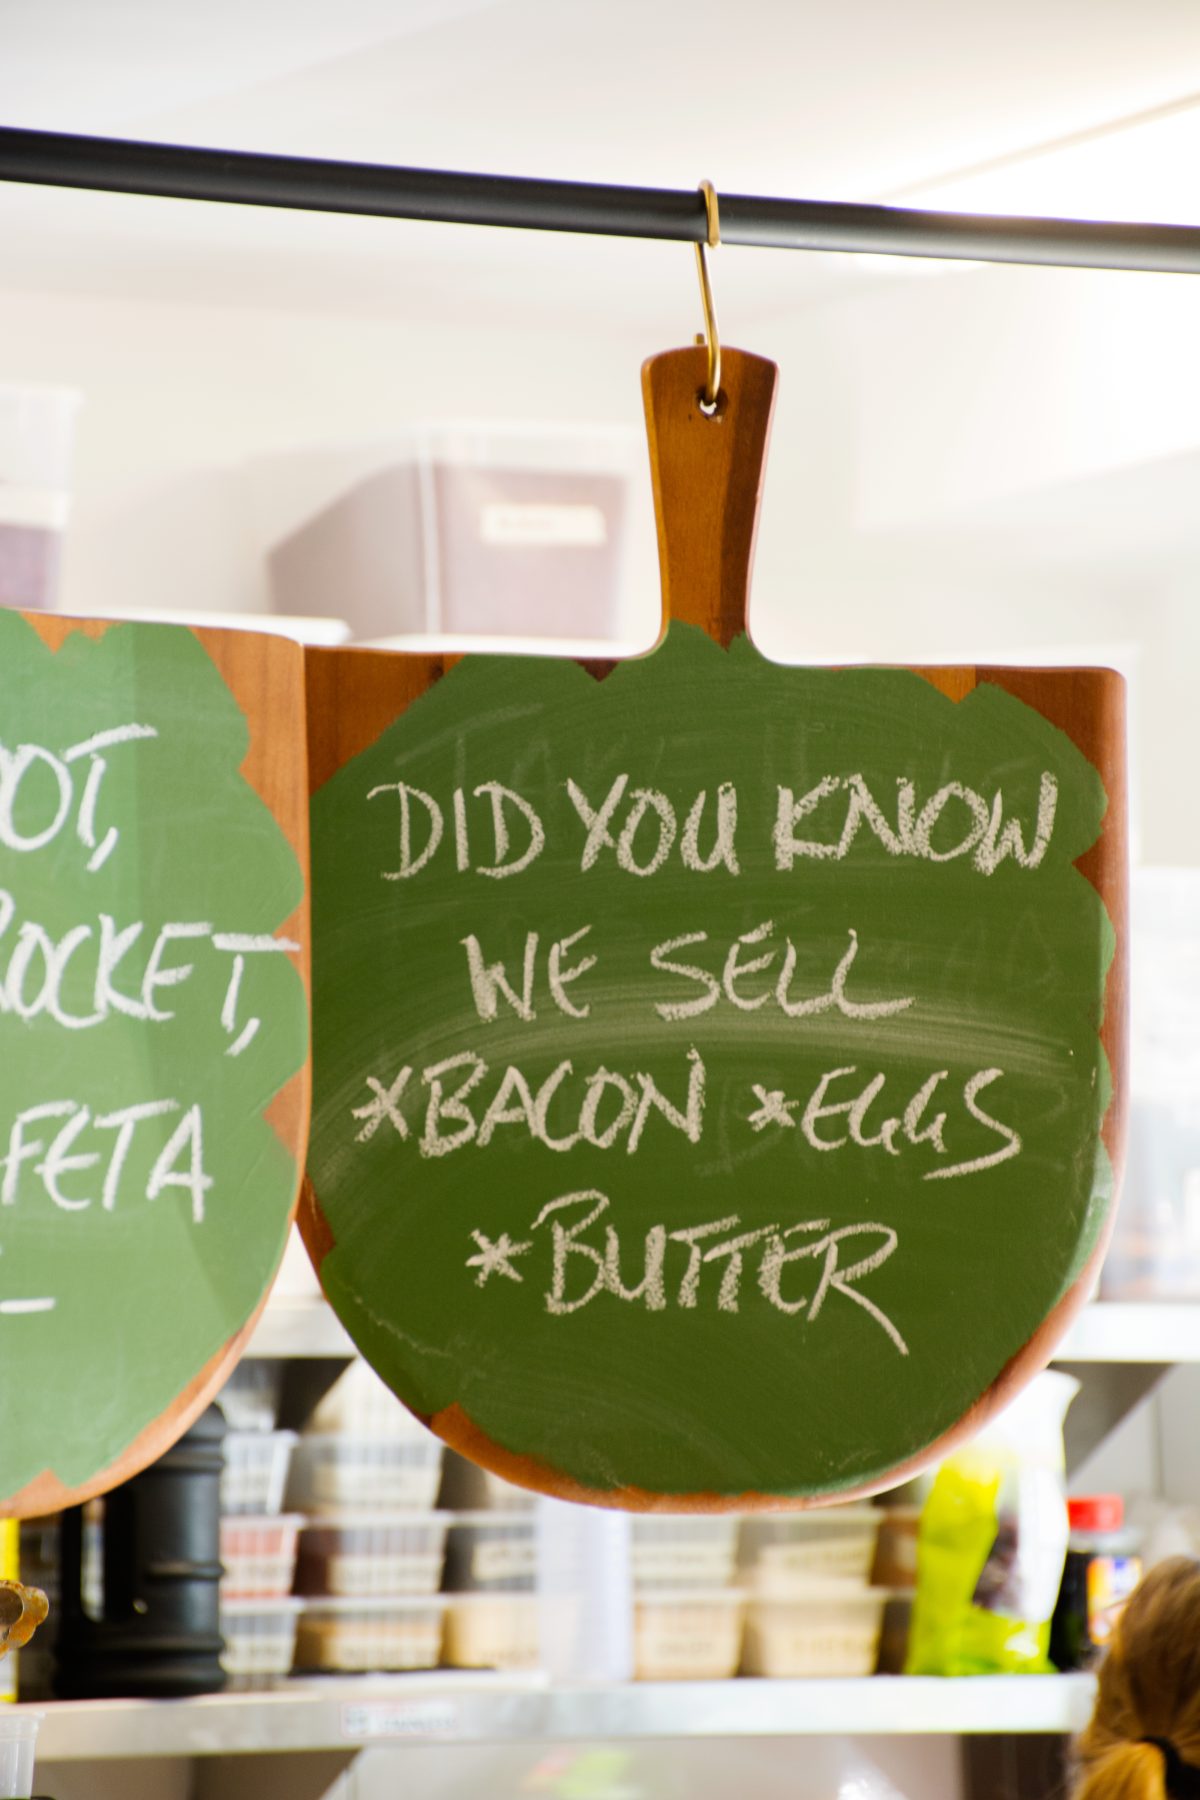 OT,
ROCKET,
FETA
-
DID YOU KNOW
WE SELL
*BACON *EGGS
*BUTTER